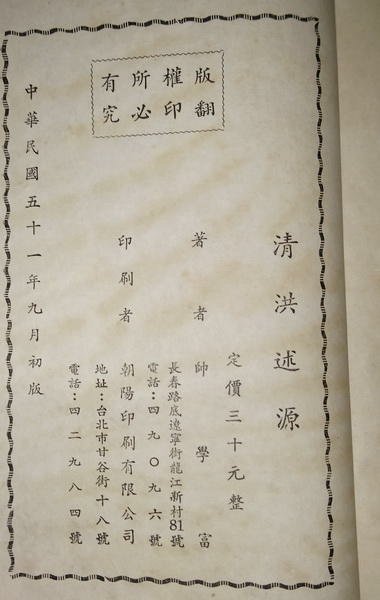 版權所有
翻印必究
清洪述源
定價三十元整
著者帥學富
長春路底遼寧街龍江新村81號
電話：四九〇九六號
印刷者朝陽印刷有限公司
地址：台北市廿谷街十八號
電話：四二九八四號
中華民國五十一年九月初版